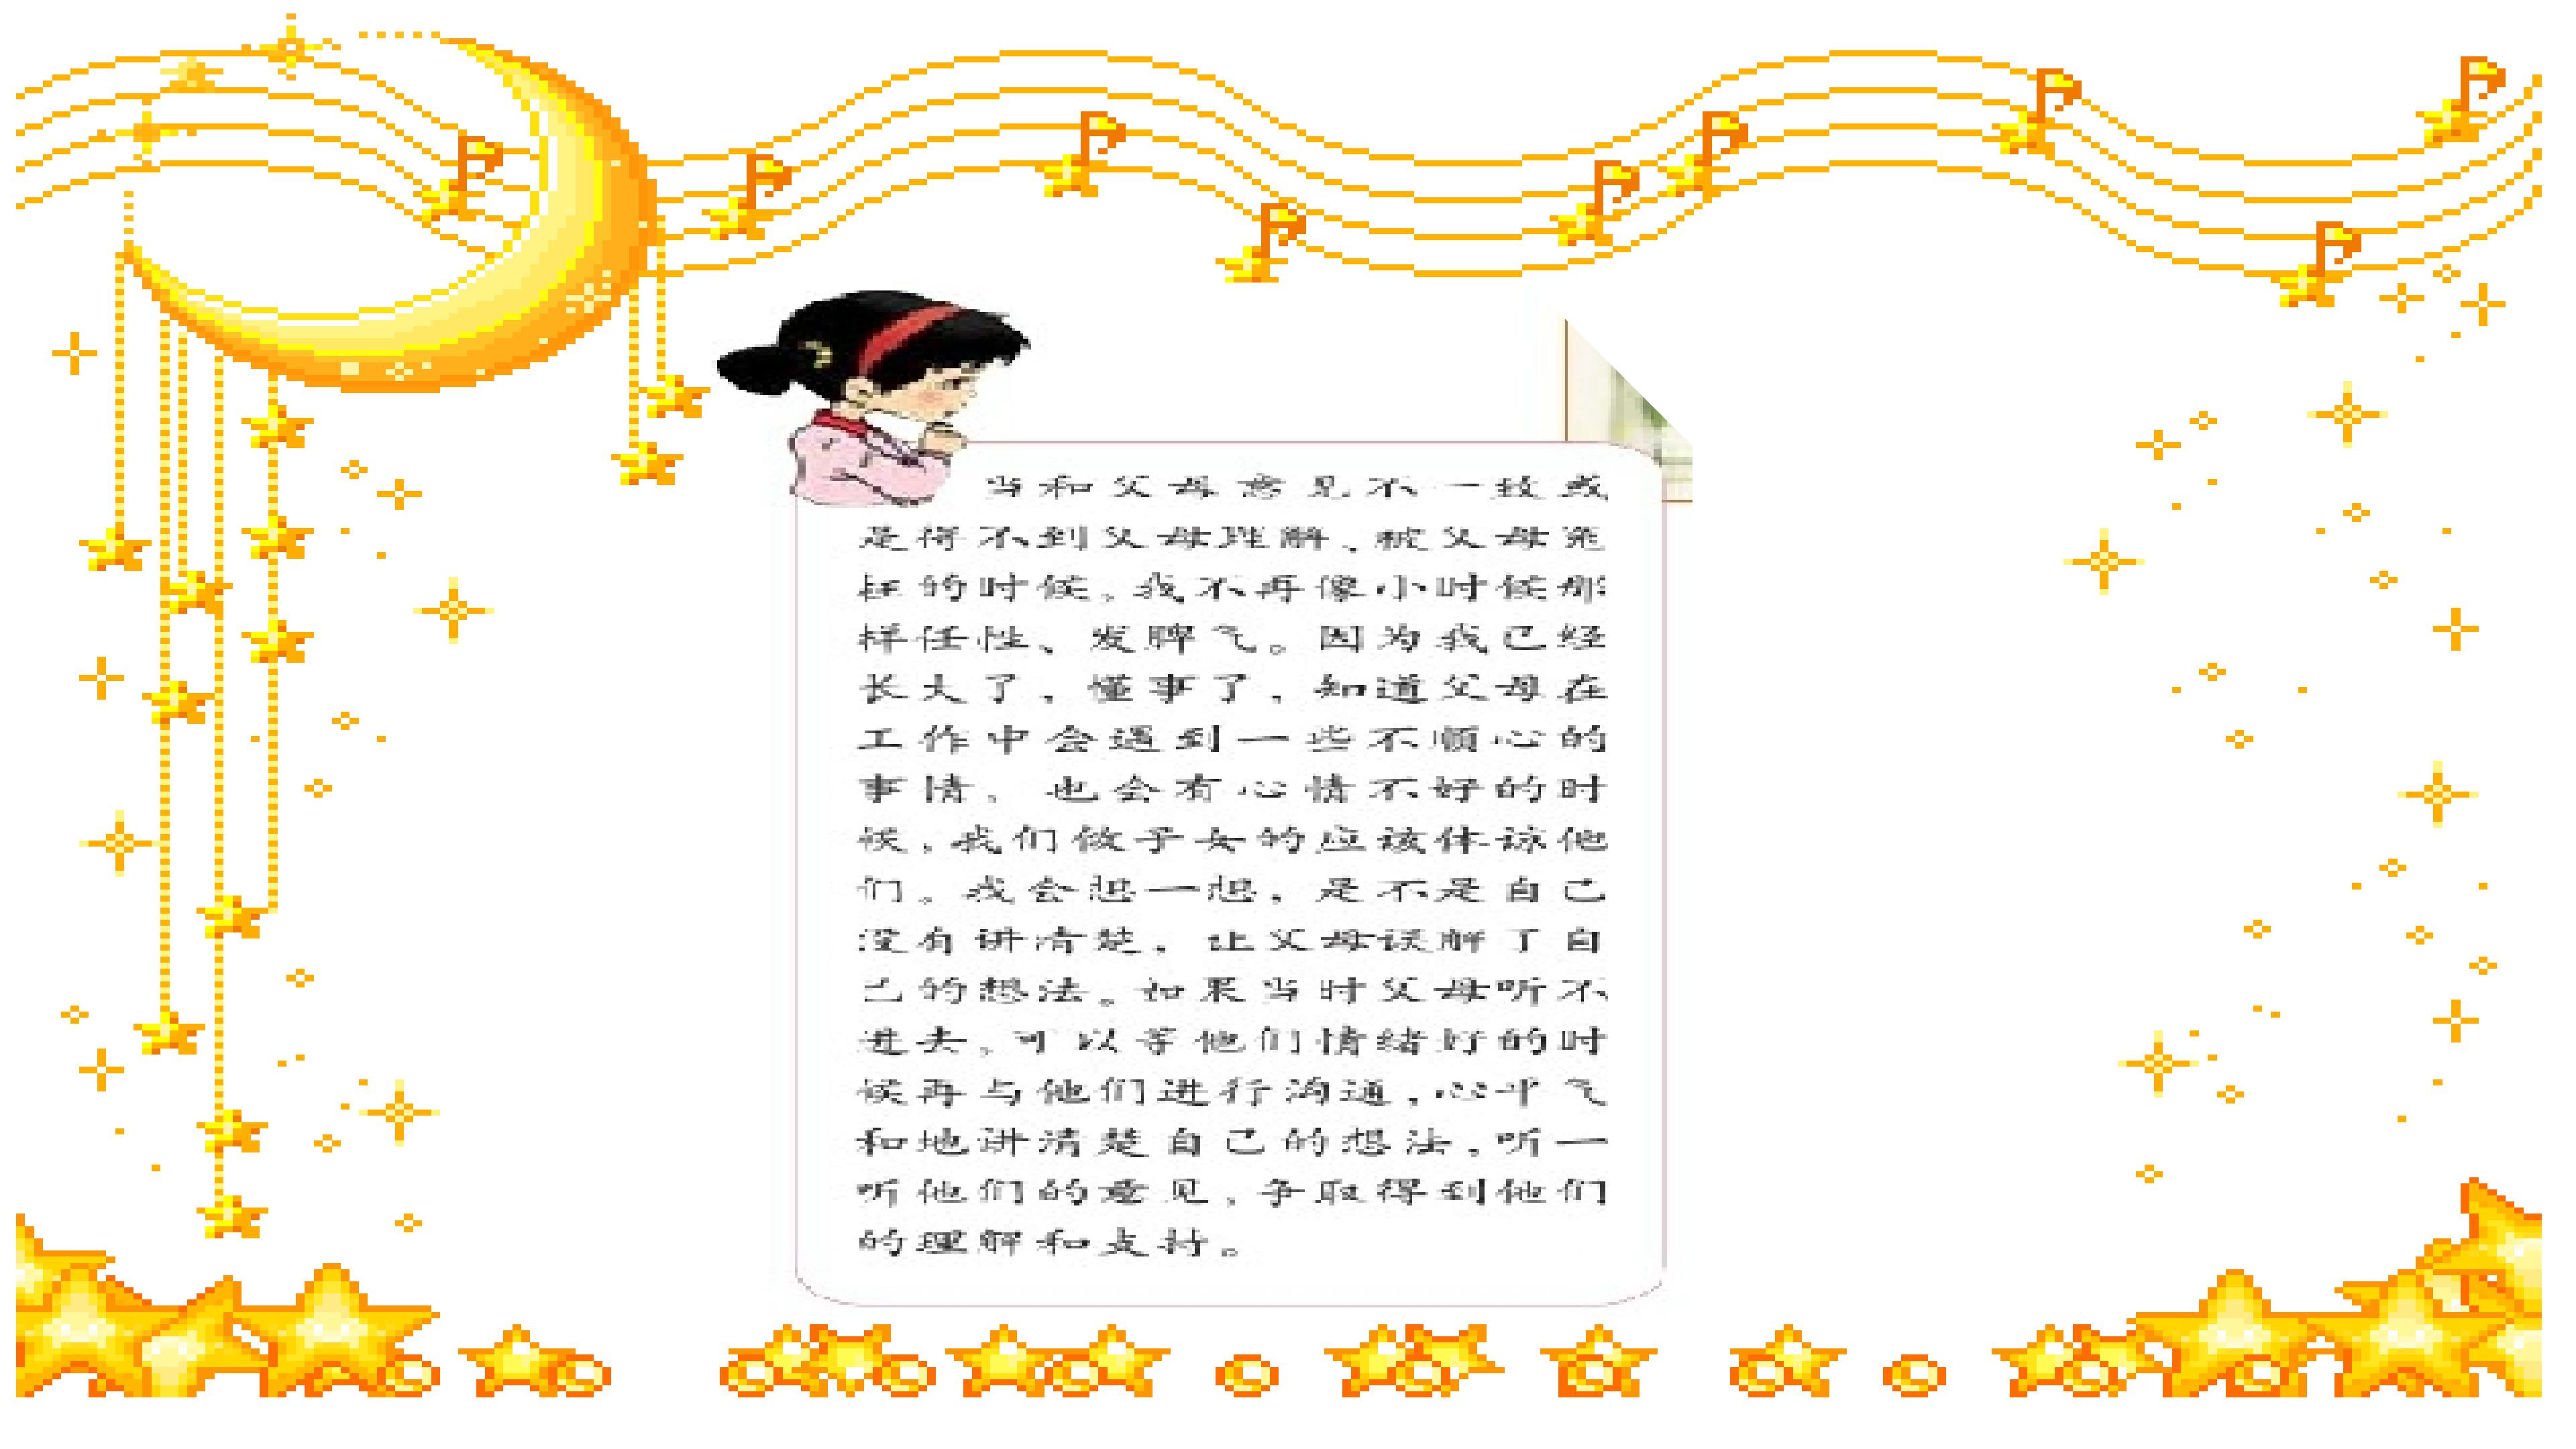 当和父母意见不一致或
是得不到父母理解、被父母冤
枉的时候，我不再像小时候那
样任性、发脾气。因为我已经
长大了，懂事了，知道父母在
工作中会遇到一些不顺心的
事情，也会有心情不好的时
候，我们做子女的应该体谅他
们。我会想一想，是不是自己
没有讲清楚，让父母误解了自
己的想法。如果当时父母听不
进去，可以等他们情绪好的时
候再与他们进行沟通，心平气
和地讲清楚自己的想法，听一
听他们的意见，争取得到他们
的理解和支持。